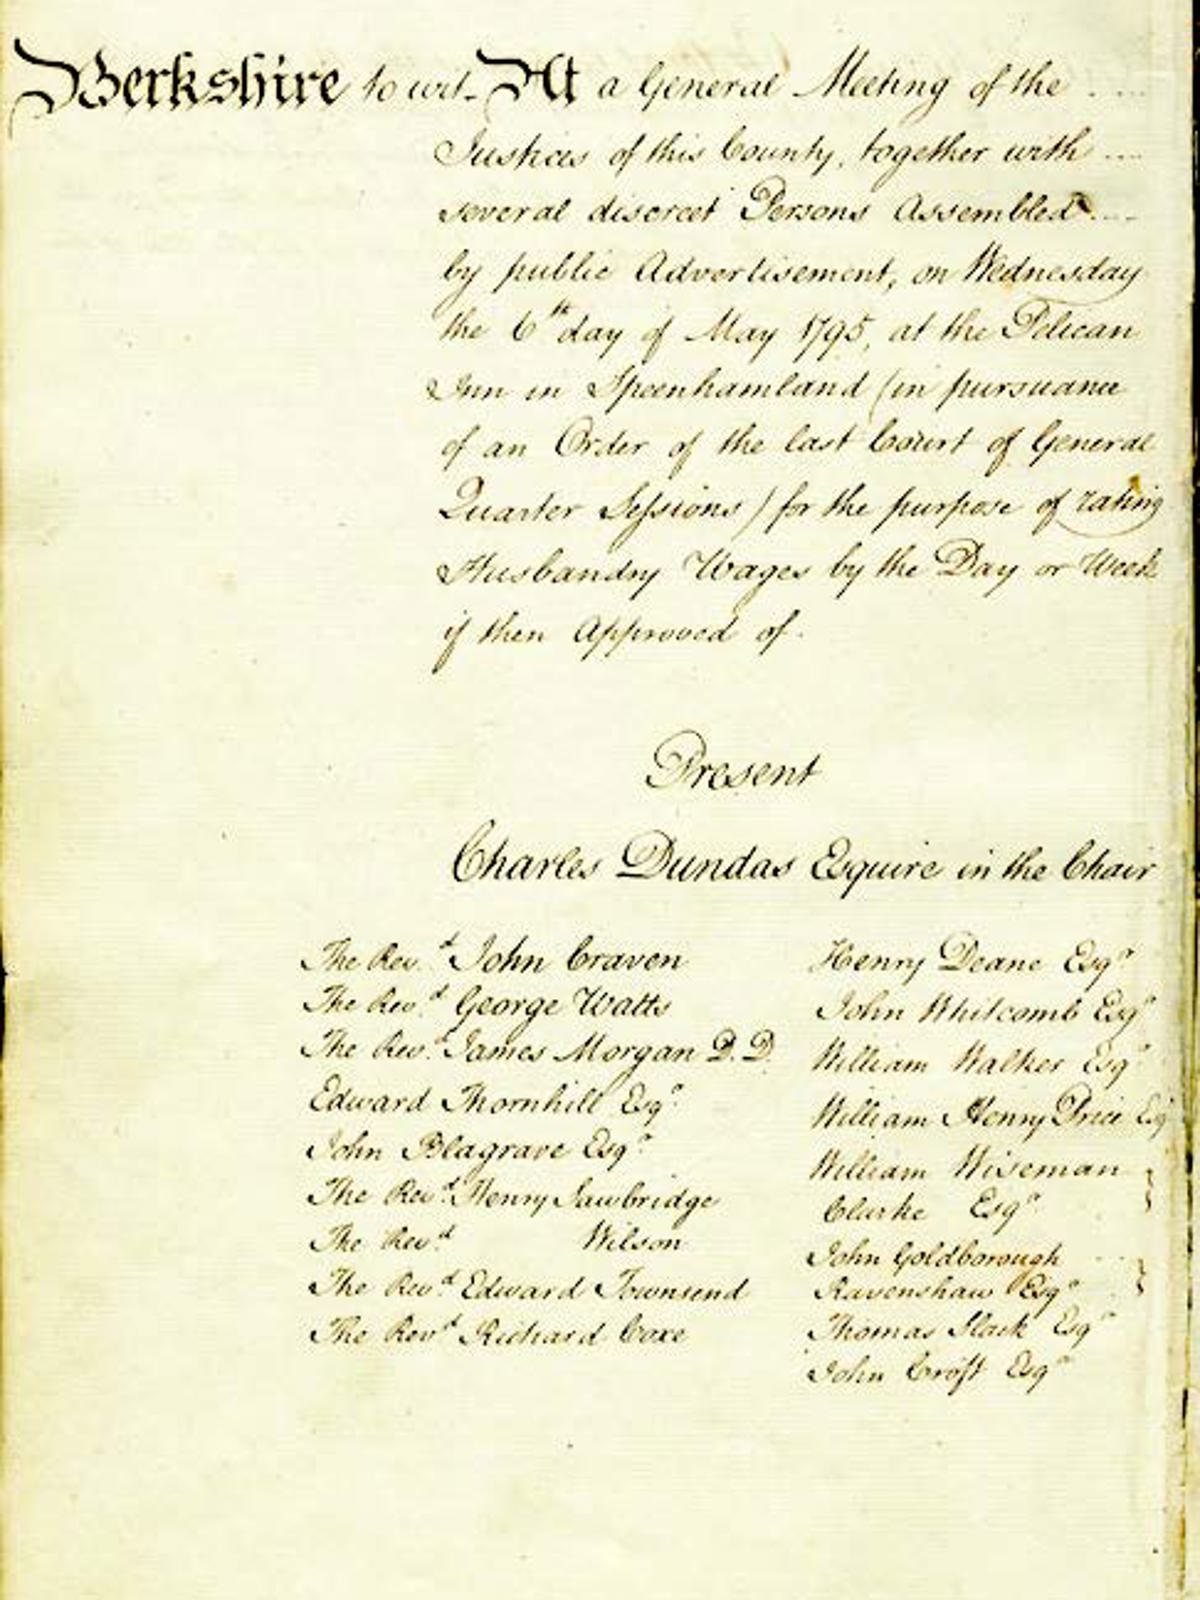 Berkshire to wit_ At a General Meeting of the ....
Justices of this County, together with ....
several discreet Persons Assembled ....
by public Advertisement, on Wednesday
the 6th day of May 1795, at the Pelican
Inn in Speenhamland (in pursuance
of an Order of the last Court of General
Quarter Sessions) for the purpose of rating
Husbandry Wages by the Day or Week
if then Approved of.
Present
Charles Dundas Esquire in the Chair
The Revd. John Craven
The Revd. George Watts
The Revd. James Morgan D. D.
Edward Thornhill Esqr.
John Blagrave Esqr.
The Revd. Henry Sawbridge
The Revd. Wilson
The Revd. Edward Townsend
The Revd. Richard Coxe
Henry Deane Esqr.
John Whitcomb Esqr.
William Walker Esqr.
William Henry Price Esqr
William Wiseman }
Clarke Esqr. }
John Goldborough }
Ravenshaw Esqr. }
Thomas Slack Esqr.
John Croft Esqr.